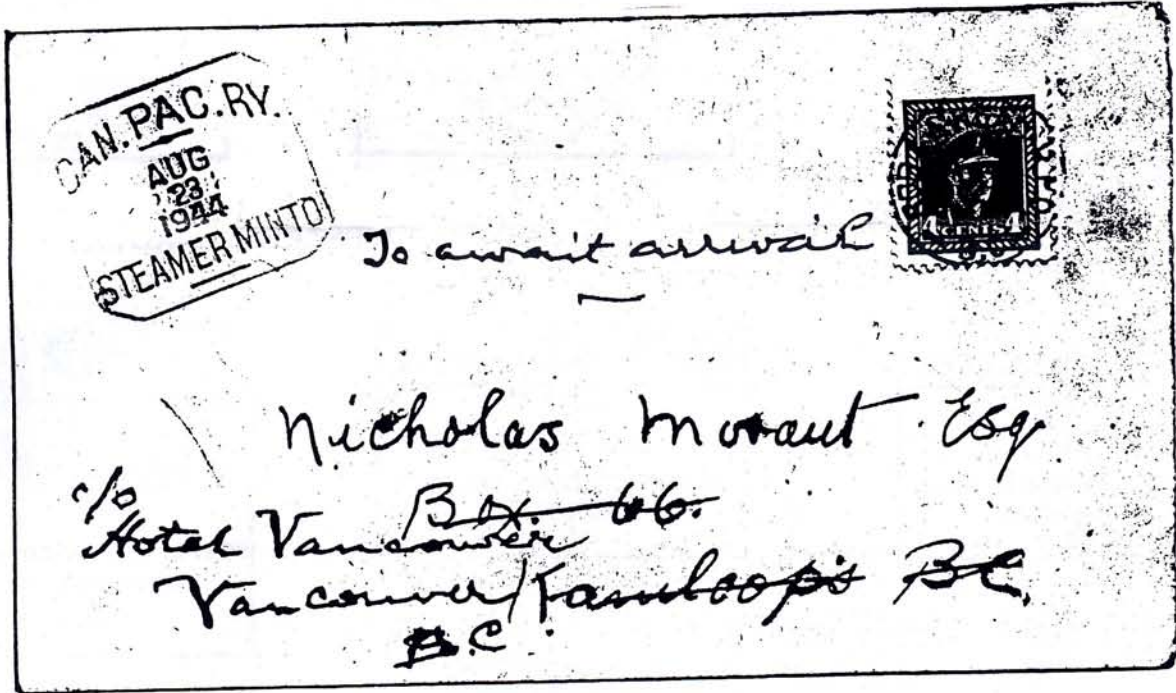 CAN. PAC. RY.
AUG
23
1944
STEAMER MINTO
4 CENTS 4
To await arrival
Nicholas Morant Esq
c/o
Box 66.
Hotel Vancouver
Vancouver / Kamloops BC
B.C.